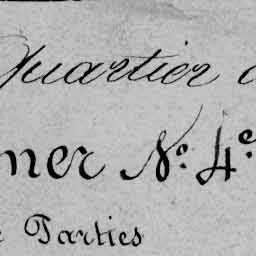 Quartier
mer No. 4e.
Parties